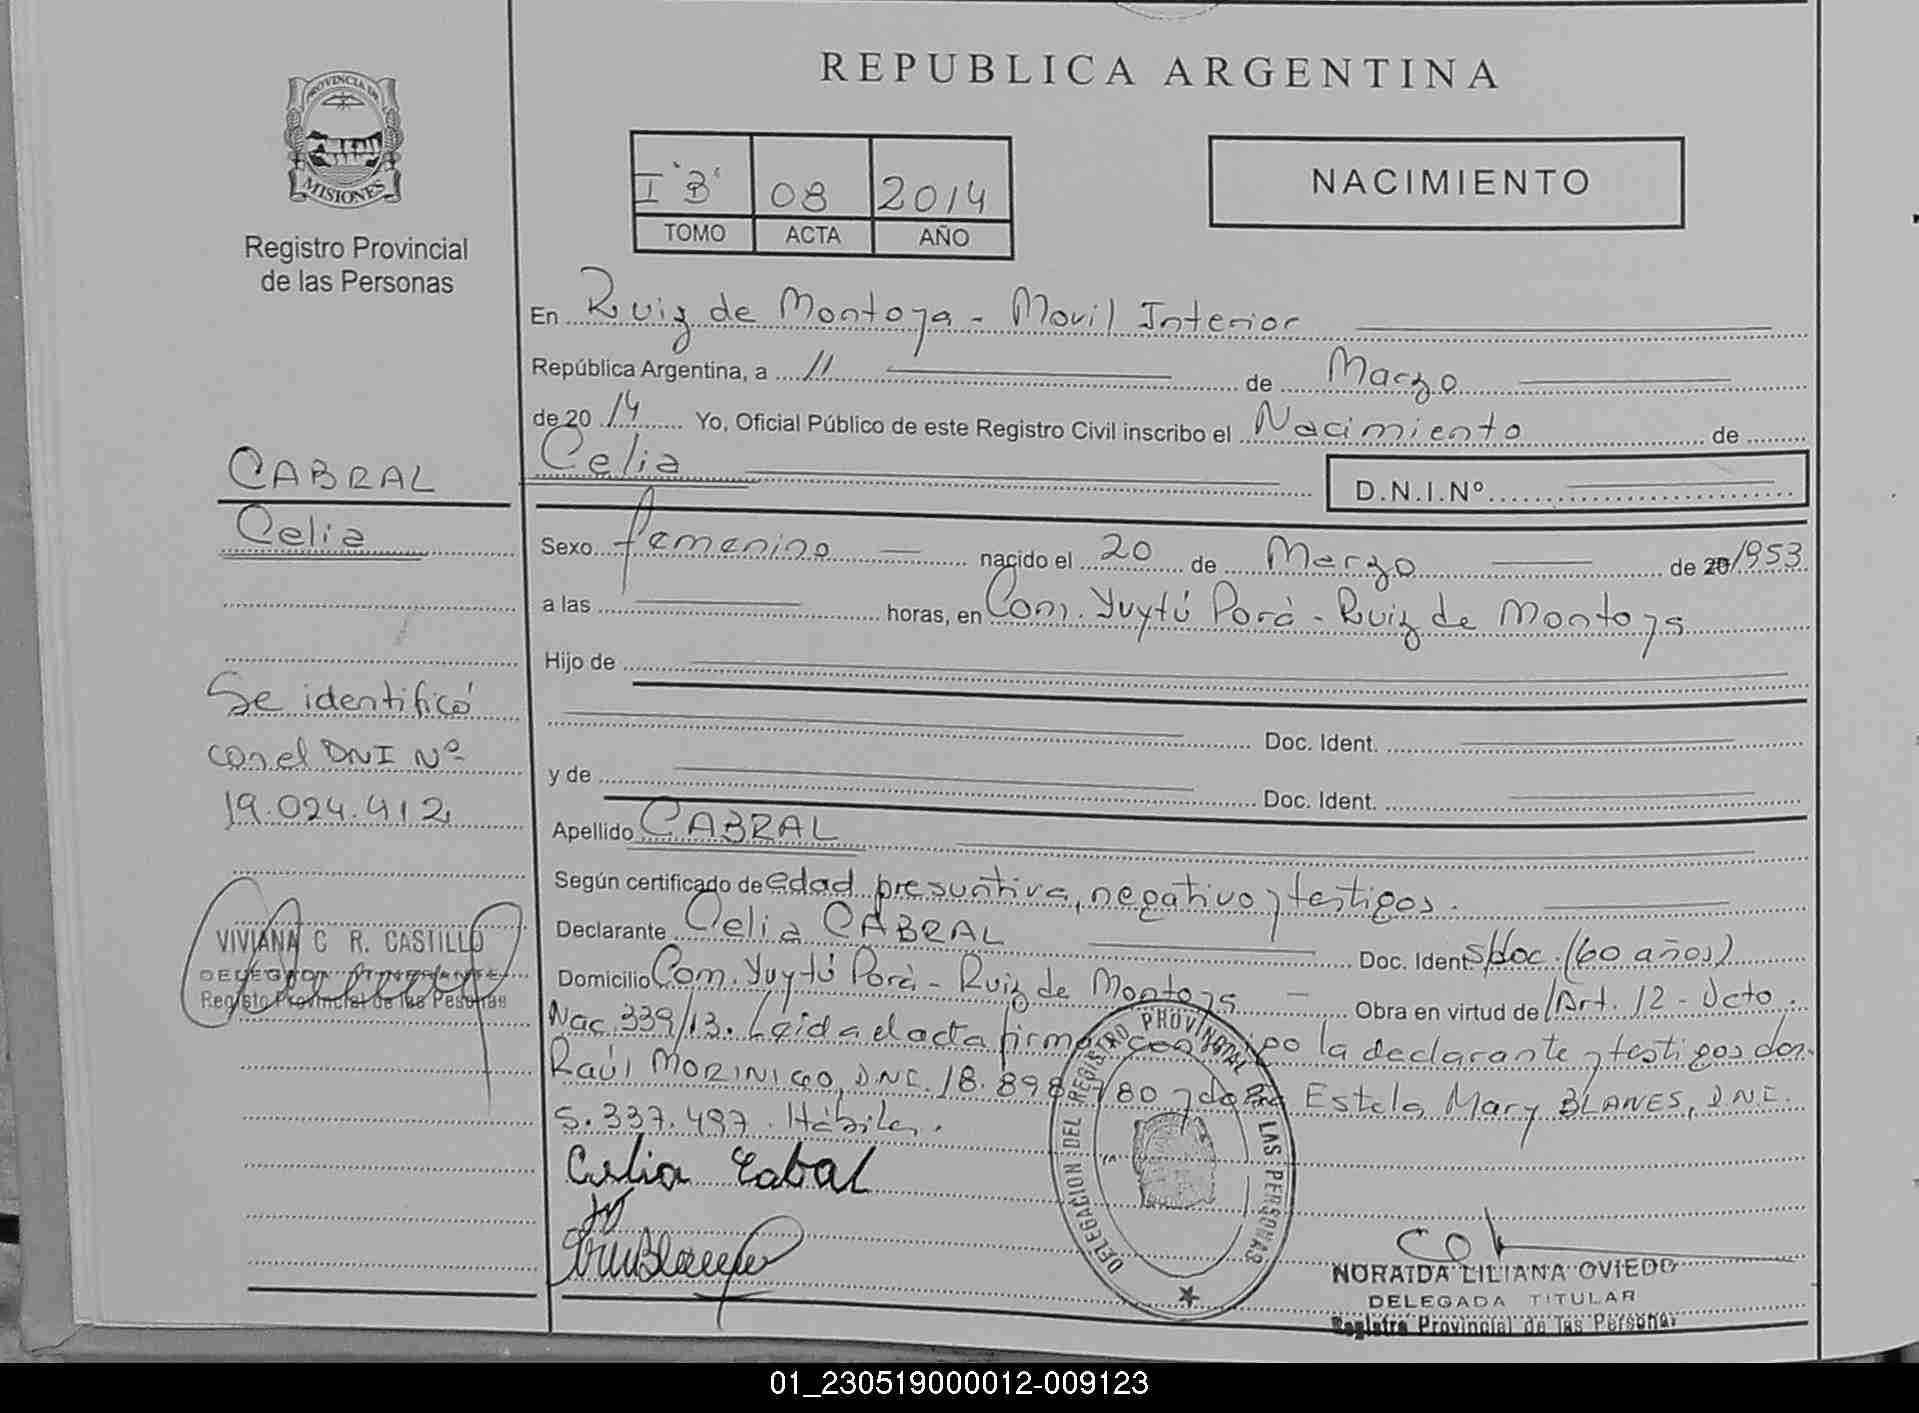 REPUBLICA ARGENTINA
PROVINCIA DE
MISIONES
Registro Provincial
de las Personas
I "B" 08 2014
TOMO ACTA AÑO
NACIMIENTO
En Ruiz de Montoya - Movil Interior
República Argentina, a 11 de Marzo
de 20 14 Yo, Oficial Público de este Registro Civil inscribo el Nacimiento de
Celia
D.N.I.Nº
CABRAL
Celia
Sexo femenino nacido el 20 de Marzo de 20/1953
a las horas, en Com. Yuytú Porá - Ruiz de Montoya
Hijo de
Doc. Ident.
y de
Doc. Ident.
Apellido CABRAL
Según certificado de edad presuntiva, negativo y testigos.
Declarante Celia CABRAL Doc. Ident s/doc. (60 años)
Domicilio Com. Yuytú Porá - Ruiz de Montoya - Obra en virtud de Art. 12 - Dcto.
Nac. 339/13. Leida el acta firma la declarante y testigos don
Raúl MORINIGO, DNI. 18.898.780 y doña Estela Mary BLANES, DNI.
5.337.497. Hábiles.
Celia Cabal
Se identificó
con el DNI Nº
19.024.412
VIVIANA C R. CASTILLO
DELEGADA ITINERANTE
Registo Provincial de las Pesonas
DELEGACION DEL REGISTRO PROVINCIAL DE LAS PERSONAS
NORAIDA LILIANA OVIEDO
DELEGADA TITULAR
Registro Provincial de las Personas
01_230519000012-009123